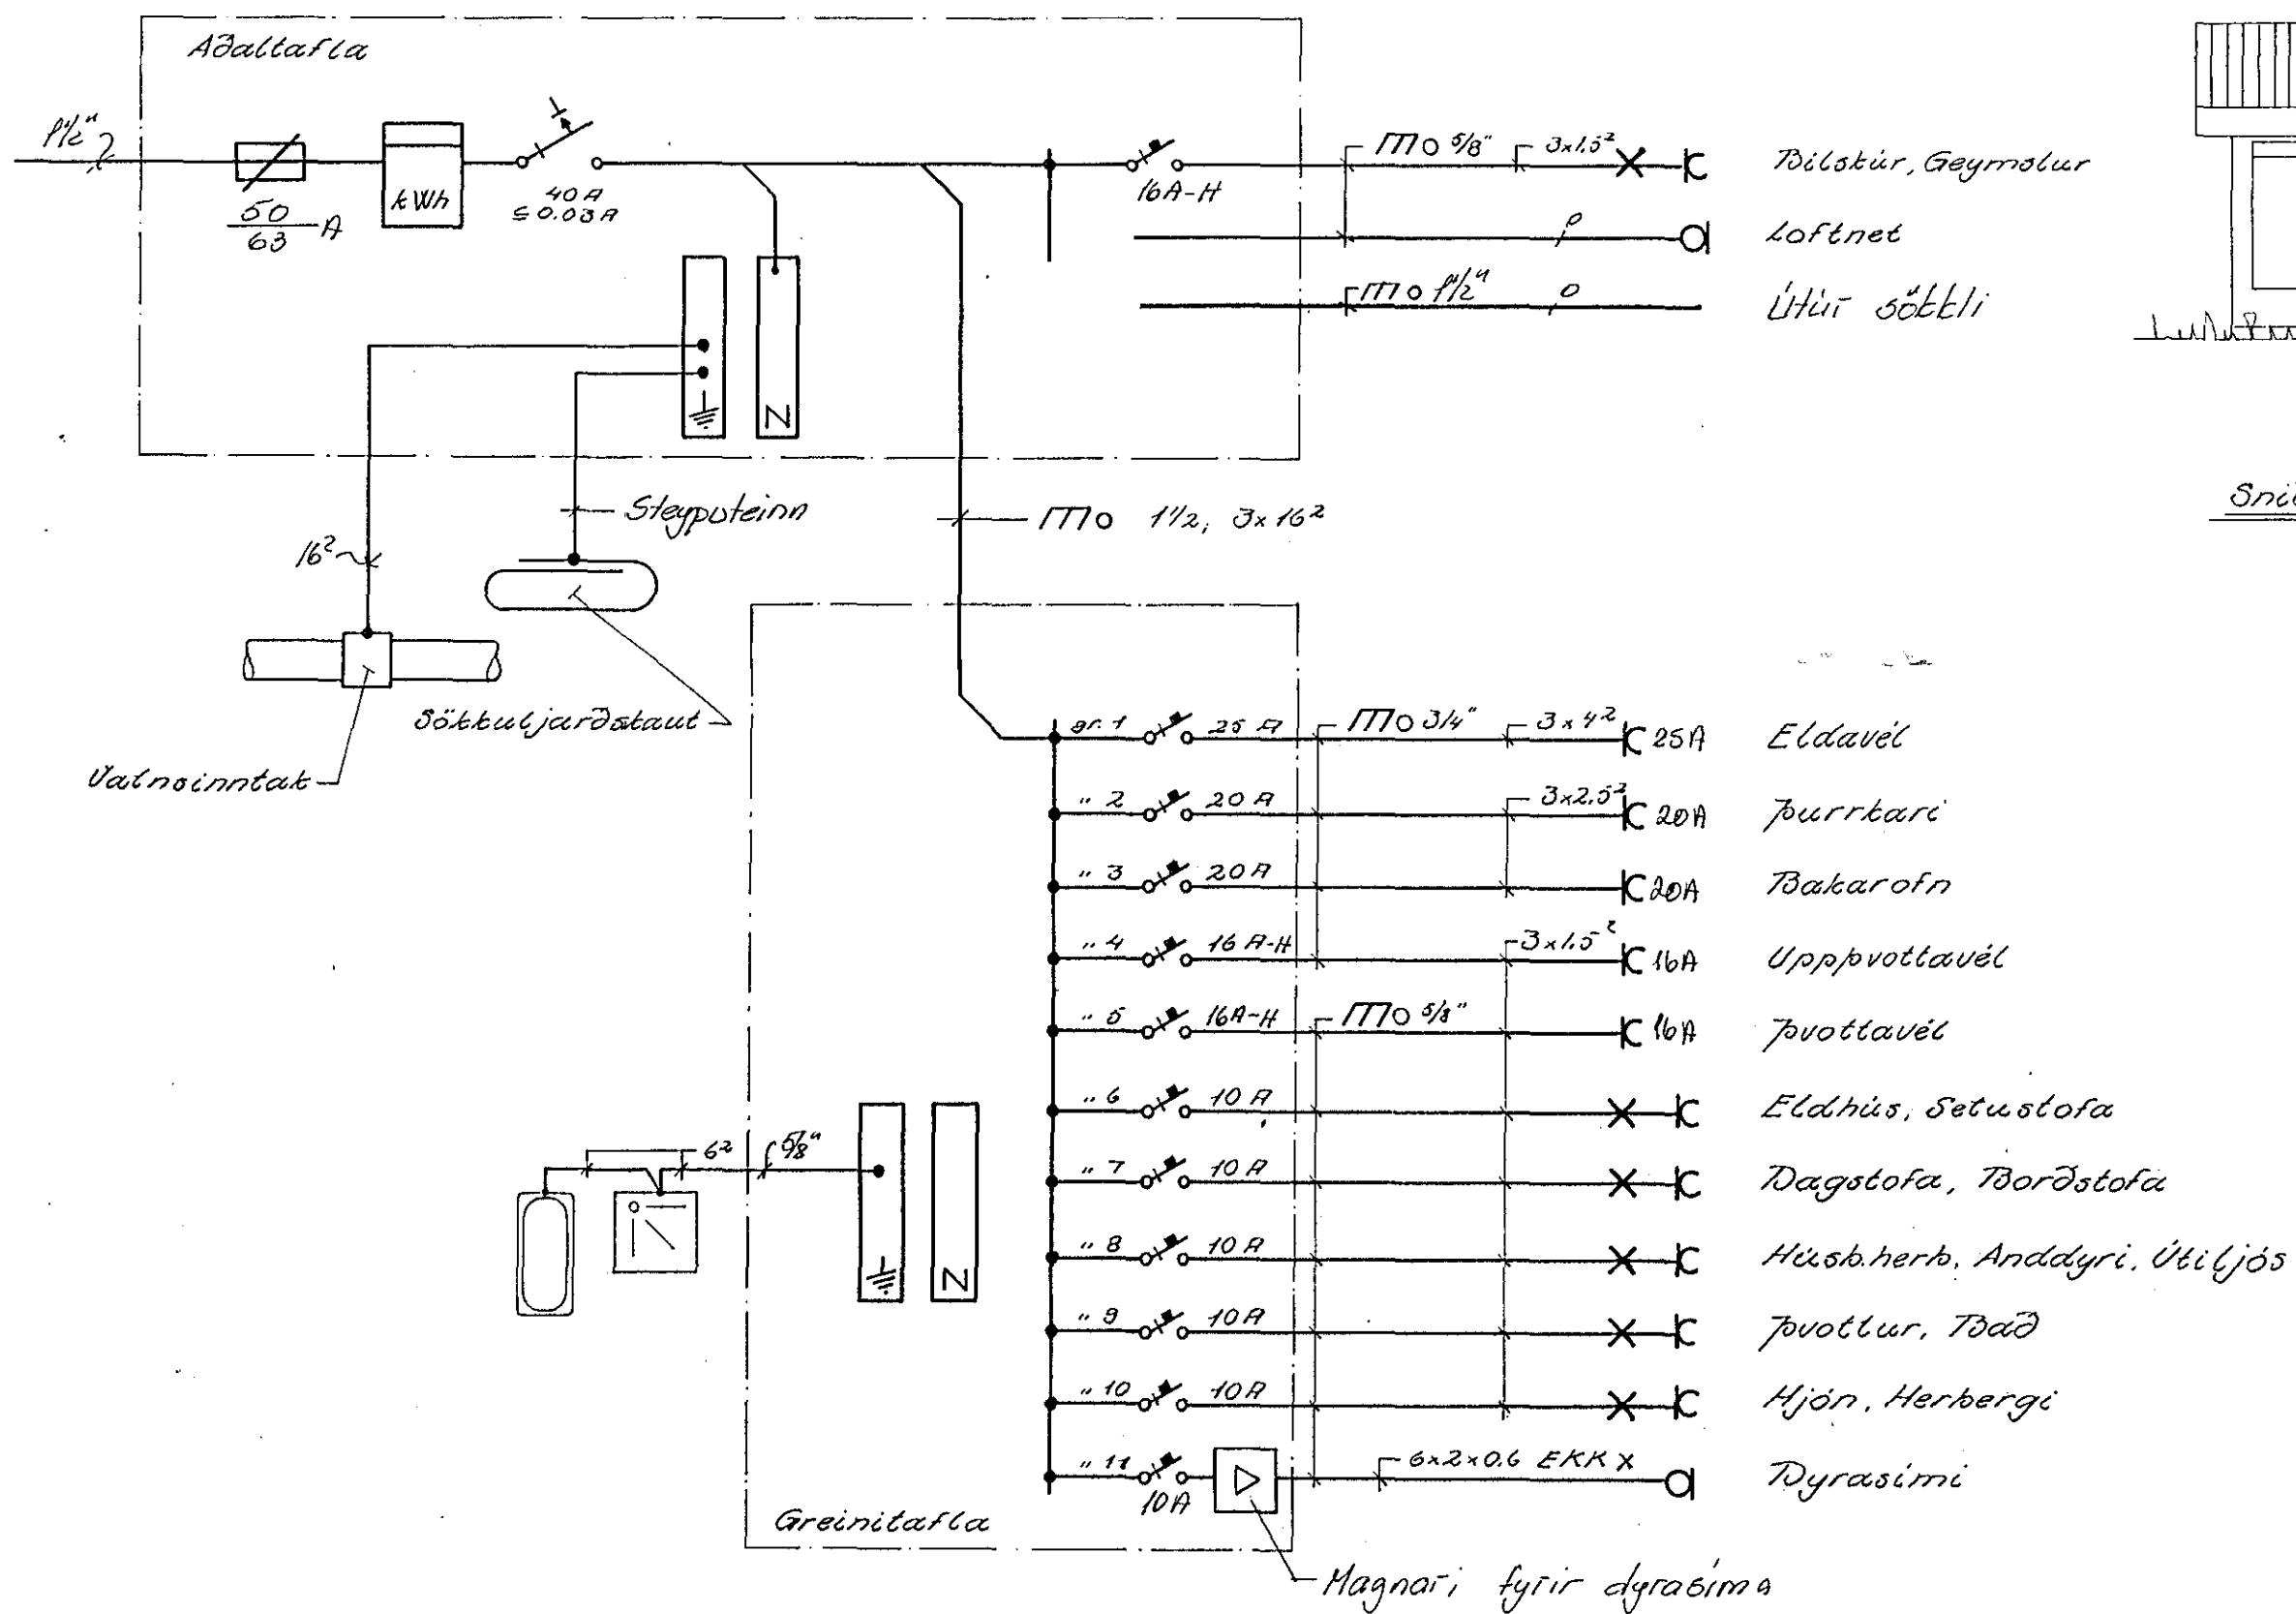 Aðaltafla
1 1/2"
50/63 A
kWh
40 A
≤ 0.03 A
16A-H
5/8"
3x1.5²
Bílskúr, Geymslur
Loftnet
1 1/2"
Útúr sökkli
N
Steyputeinn
1 1/2, 3x16²
16²
Sökkuljarðskaut
Vatnsinntak
gr. 1 25 A 3/4" 3x4² 25A Eldavél
" 2 20 A 3x2.5² 20A Þurrkari
" 3 20 A 20A Bakarofn
" 4 16 A-H 3x1.5² 16A Uppþvottavél
" 5 16A-H 5/8" 16A Þvottavél
" 6 10 A Eldhús, Setustofa
" 7 10 A Dagstofa, Borðstofa
" 8 10 A Húsb.herb, Anddyri, Útiljós
" 9 10 A Þvottur, Bað
" 10 10 A Hjón, Herbergi
" 11 10A 6x2x0.6 EKKX Dyrasími
6² 5/8"
N
Greinitafla
Magnari fyrir dyrasíma